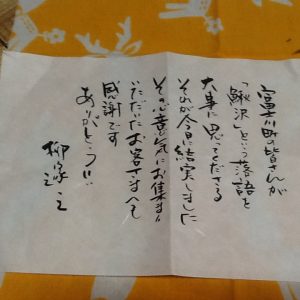 富士川町の皆さんが
「鰍沢」という落語を
大事に思ってくださる
それが今日に結実しました
その心意気にお集まり
いただいたお客さますべて
感謝です
ありがとう!!!
柳家